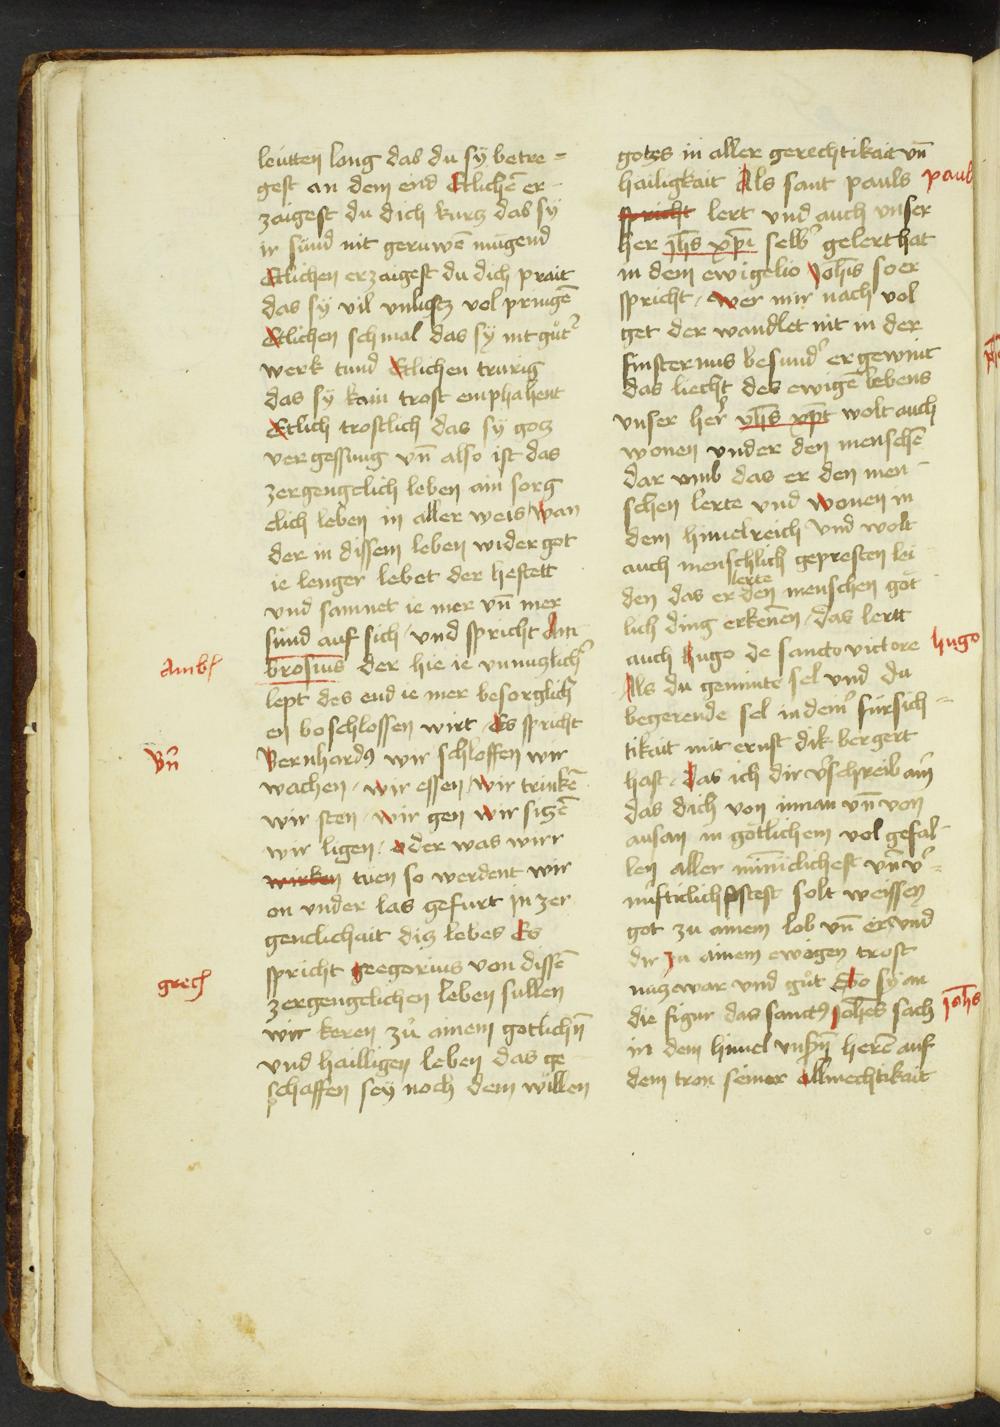 leutten lang das du sy betre=
gest an dem end Etlichē er-
zaigest du dich kurtz das sy
ir sund nit geruwē mugend
Etlichen erzaigest du dich prait
das sy vil vnlustz vol pringē
Etlichen schmal das sy nit gůt
werk tund Etlichen trurig
das sy kain trost emphahent
Etlich trostlich das sy gotz
vergessung vn̄ also ist das
zergengclich leben ain sorg
clich leben in aller weis Wan
der in dissem leben wider got
ie lenger lebet der hefftett
vnd samnet ie mer vn̄ mer
sund auf sich / vnd spricht Am
Ambr
brosius der hie ie vnnutzlich
lept des end ie mer besorglich
en beschlossen wirt / Es spricht
Bn̄
Bernhard9 wir schloffen wir
wachen / wir essen / Wir trinkē
wir sten / wir gen wir sitzē
wir ligen / oder was wirr
wirken tuen so werdent wir
on vnder las gefurt in zer
genclichait ditz lebes Es
grech
spricht gregorius von dissē
zergengclichen leben sullen
wir keren zů ainem gotlichn̄
vnd hailligen leben das ge
schaffen sey noch dem willen
gotes in aller gerechtikait vn̄
hailigkait Als sant pauls paul
spricht lert vnd auch vnser
her jhs xpi selb gelert hat
in dem ewigelio Johis so er
spricht / wer mir nach vol
get der wandlet nit in der
finsternus besund er gewint
das liecht des ewigē lebens
vnser her yhs xpt wolt auch
wonen vnder den menschē
dar vmb das er den men-
schen lerte vnd wonen in
dem himelreich vnd wolt
auch menschlich gepresten lei
den das er lerte den menschen göt
lich ding erkenen / das lertt
auch hugo de sancto victore hugo
Als du geminte sel vnd du
begerende sel in dem fürsich=
tikait mit ernst dik bergert
hast / Das ich dir v'schreib ain
das dich von innan vn̄ von
ausan in götlichem vol gefal-
len aller miniclichest vn̄ v'=
nufticlich stest solt weissen
got zu ainem lob vn̄ er vnd
dir zu ainem ewigen trost
nutzewar vnd gůt Also sy an
die figur das sanct9 johēs sach johs
in dem himel vnsn̄ herē auf
dem tron seiner allmechtikait